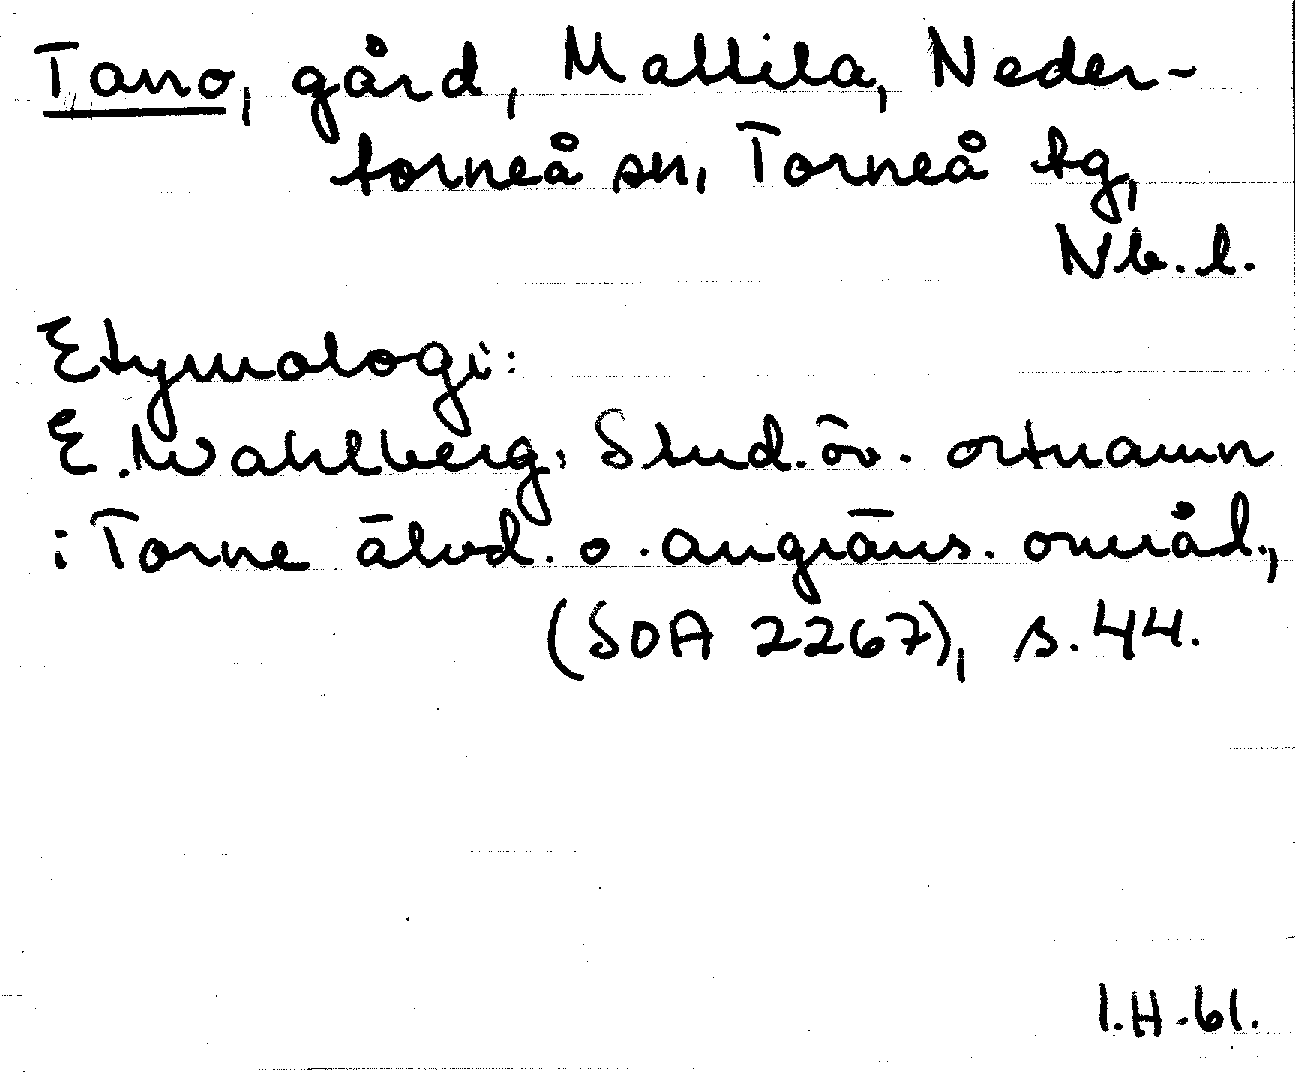 Tano, gård, Mattila, Neder-
torneå sn, Torneå tg,
Nb. l.
Etymologi:
E. Wahlberg, Stud. öv. ortnamn
i Torne älvd. o. angräns. områd.,
(SOA 2267), s. 44.
I.H. 61.